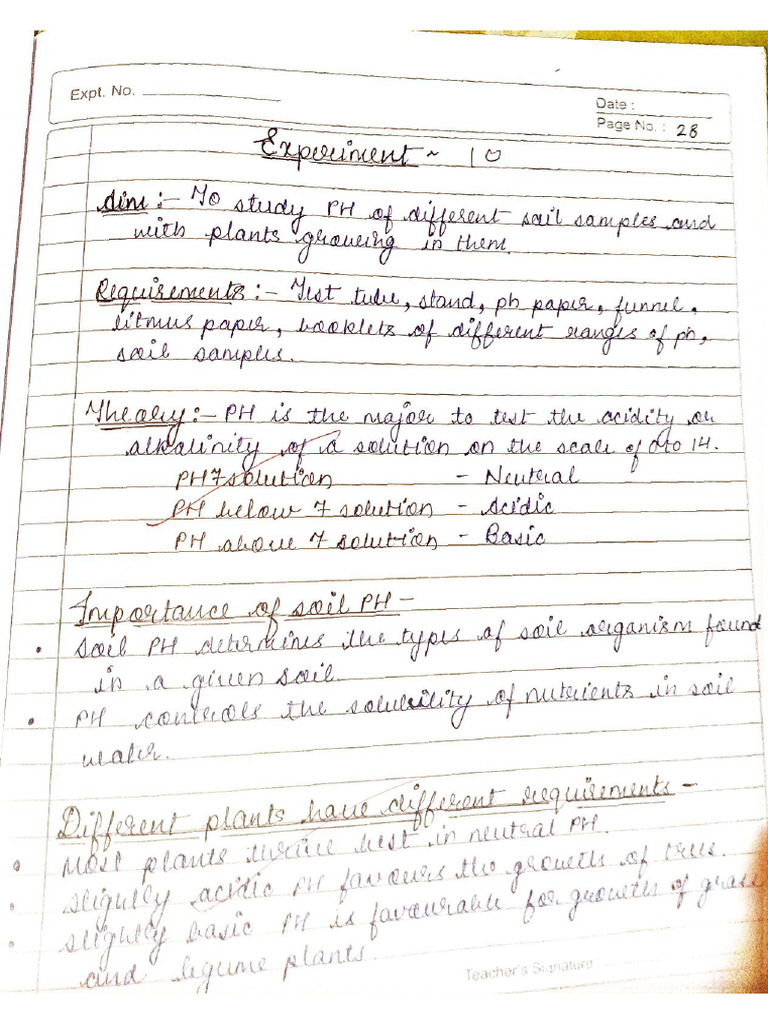 Expt. No.
Date :
Page No. : 28
Experiment ~ 10
Aim :- To study PH of different soil samples and
with plants growing in them.
Requirements :- Test tube, stand, ph paper, funnel,
litmus paper, booklets of different ranges of ph,
soil samples.
Theory :- PH is the major to test the acidity or
alkalinity of a solution on the scale of 0 to 14.
PH 7 solution - Neutral
PH below 7 solution - Acidic
PH above 7 solution - Basic
Importance of soil PH -
• Soil PH determines the types of soil organism found
in a given soil.
• PH controls the solubility of nutrients in soil
water.
Different plants have different requirements -
• Most plants thrive best in neutral PH.
• Slightly acidic PH favours the growth of trees.
• Slightly basic PH is favourable for growth of grass
and legume plants.
Teacher's Signature